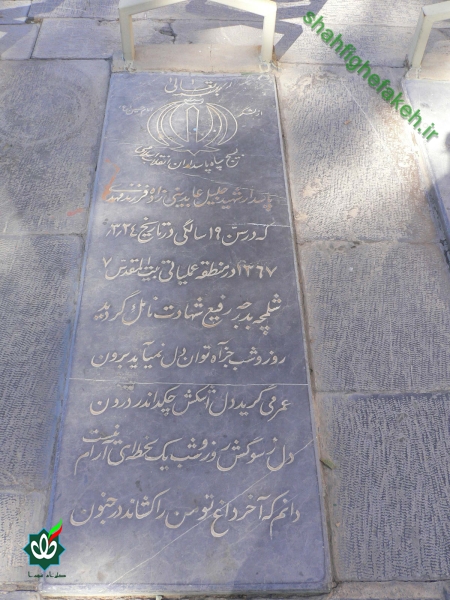 shahfighefakeh.ir
بسمه تعالی
بسیج سپاه پاسداران انقلاب اسلامی
پاسدار شهید خلیل عابدینی زاده فرزند مهدی
که در سن ۱۹ سالگی در تاریخ ۳/۲۴/
۱۳۶۷ در منطقه عملیاتی بیت المقدس ۷
شلمچه بدرجه رفیع شهادت نائل گردید
روز و شب جز آه توان دل نمیآید برون
عمر می گرید دل اشکش چکد اندر درون
دل ز سوگش روز و شب یک لحظه ای آرام نیست
دانم که آخر داغ تو من را کشاند در جنون